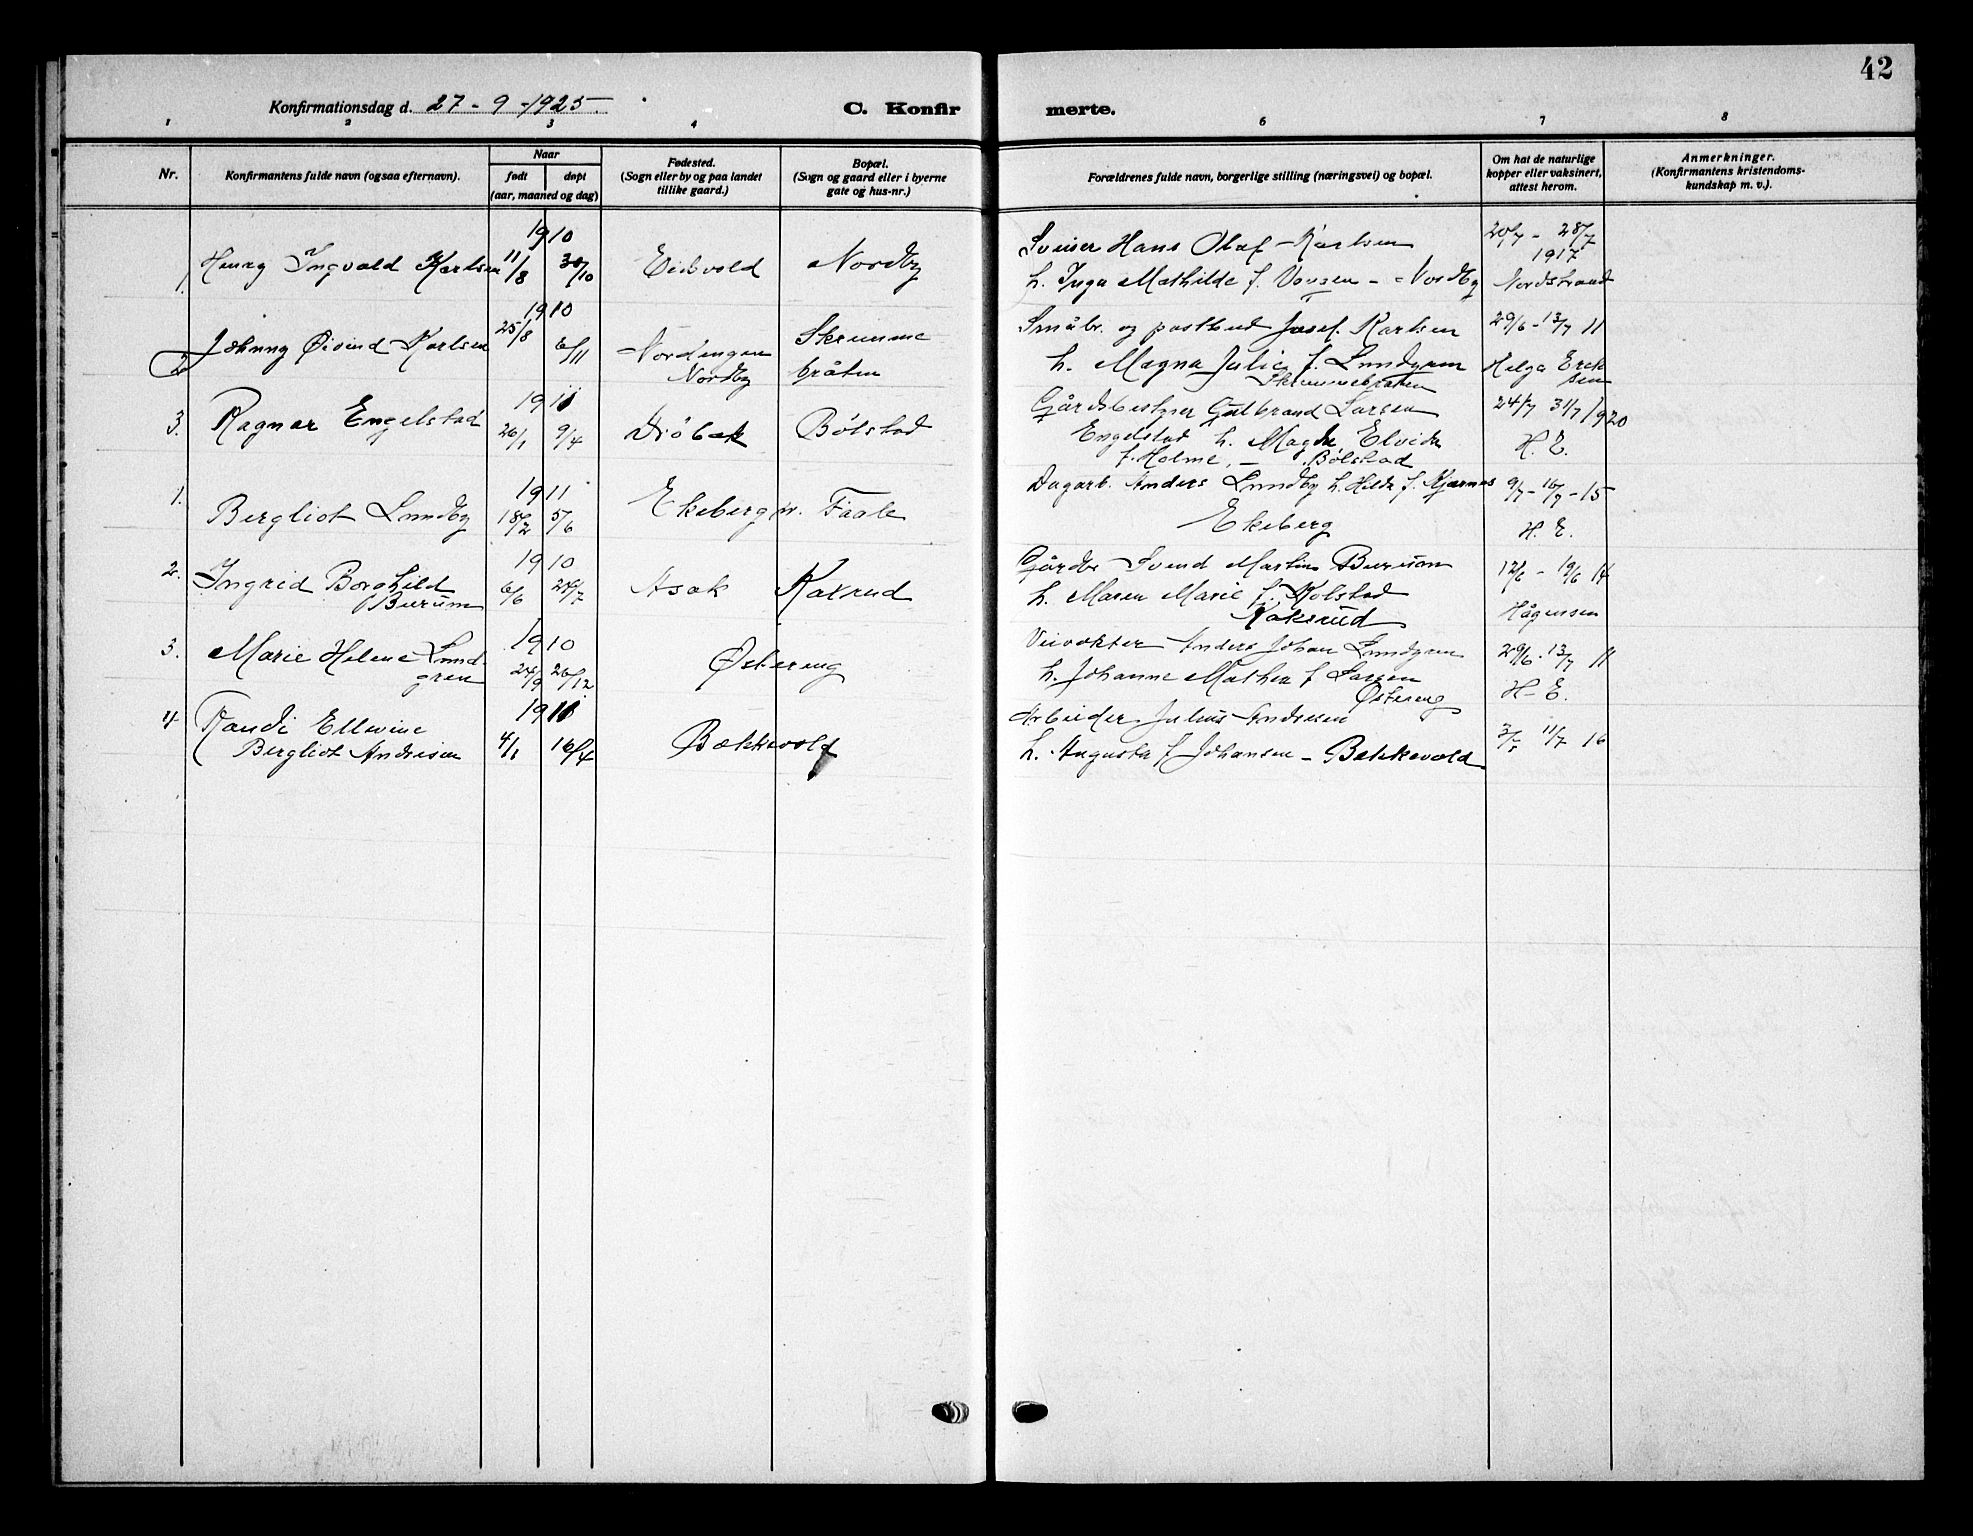 42
Konfirmationsdag d. 27-9-1925.
C. Konfir
merte.
1 2 3 4
6 7 8
Nr.
Konfirmantens fulde navn (ogsaa efternavn).
Naar
født døpt
(aar, maaned og dag)
Fødested.
(Sogn eller by og paa landet
tillike gaard.)
Bopæl.
(Sogn og gaard eller i byerne
gate og hus-nr.)
Forældrenes fulde navn, borgerlige stilling (næringsvei) og bopæl.
Om hat de naturlige
kopper eller vaksinert,
attest herom.
Anmerkninger.
(Konfirmantens kristendoms-
kundskap m. v.).
1910
1. Henry Ingvald Karlsen 11/8 30/10 Eidsvold Nordby
Sveiser Hans Olaf Karlsen
h. Inga Mathilde f. - Nordby
20/7 - 28/7
1917
Nordstrand
1910
2. Johnny Øivind Karlsen 25/8 6/11 Nordengen
Nordby
Skrumme
bråten
Småbr. og postbud Josef Karlsen
h. Magna Julie f. Lundgren
Skrummebråten
29/6 - 13/7 11
Helga Erik
sen
1911
3. Ragnar Engelstad 26/1 9/4 Drøbak Bølstad
Gårdsbestyrer Gulbrand Larsen
Engelstad h. Magda Elvida
f. Holme, - Bølstad
24/7 31/7 1920
H. E.
1911
1. Bergliot Lundby 18/2 5/6 Ekeberg
Dagarb. Anders Lundby h. Hilda f. Kjærnes
Ekeberg
9/7 - 16/7 - 15
H. E.
1910
2. Ingrid Borghild
Burum
6/6 24/7 Asak Kaksrud
Gårdbr Svend Martin Burum
h. Maren Marie f. Kolstad
Kaksrud
12/6 - 19/6 14
Hågensen
1910
3. Marie Helene Lund-
gren
24/9 26/12 Østereng
Veivokter Anders Johan Lundgren
h. Johanne Mathea f Larsen
Østereng
29/6 - 13/7 11
H. E.
1911
4 Randi Ellevine
Bergliot Andresen
4/1 16/4 Bækkevold
Arbeider Julius Andresen
h. Augusta f Johansen - Bækkevold
3/7 11/7 16